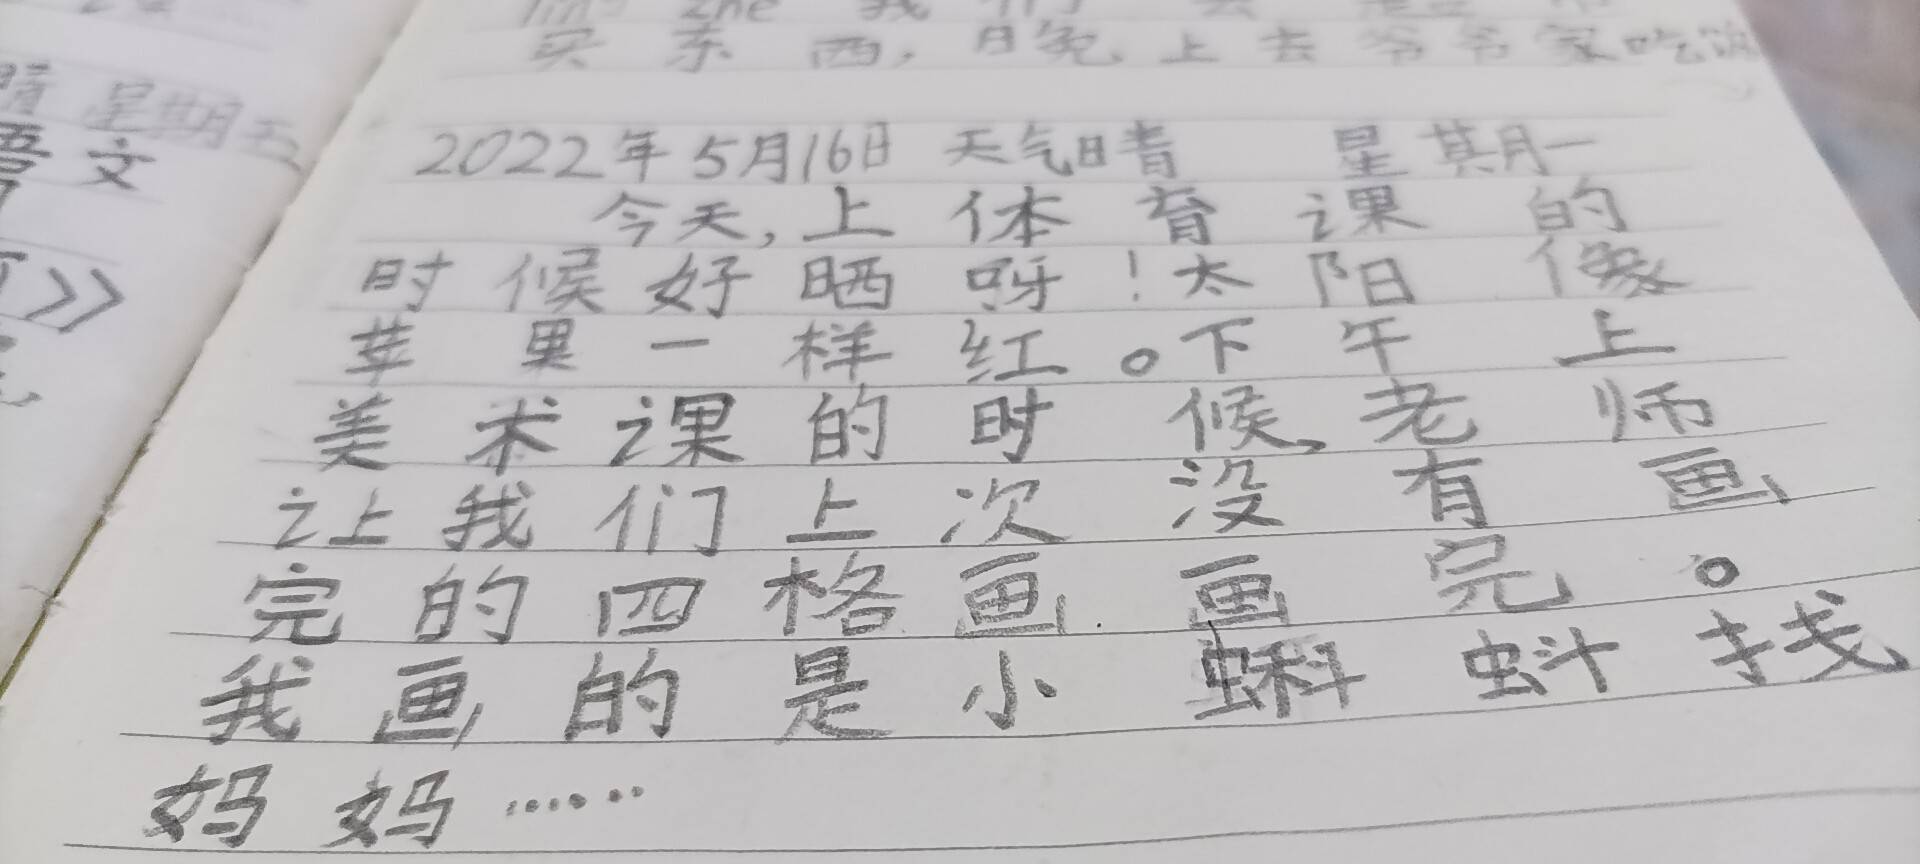 晴 星期五
语 文
》
买东西，晚上去爷爷家吃饭
2022年5月16日 天气晴 星期一
今天，上体育课的
时候好晒呀！太阳像
苹果一样红。下午上
美术课的时候，老师
让我们上次没有画
完的四格画画完。
我画的是小蝌蚪找
妈妈……